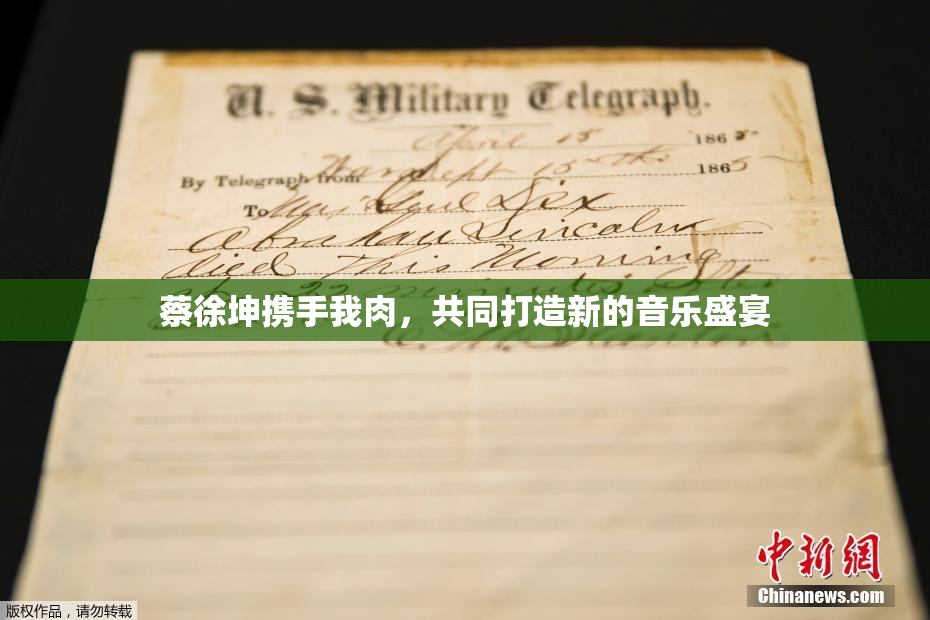 U. S. Military Telegraph.
April 15 1865
By Telegraph from War Dept 15th 1865
To Maj Genl Dix
Abraham Lincoln
died This Morning
22 minutes after
蔡徐坤携手我肉，共同打造新的音乐盛宴
E. M. Stanton
中新网
Chinanews.com
版权作品，请勿转载